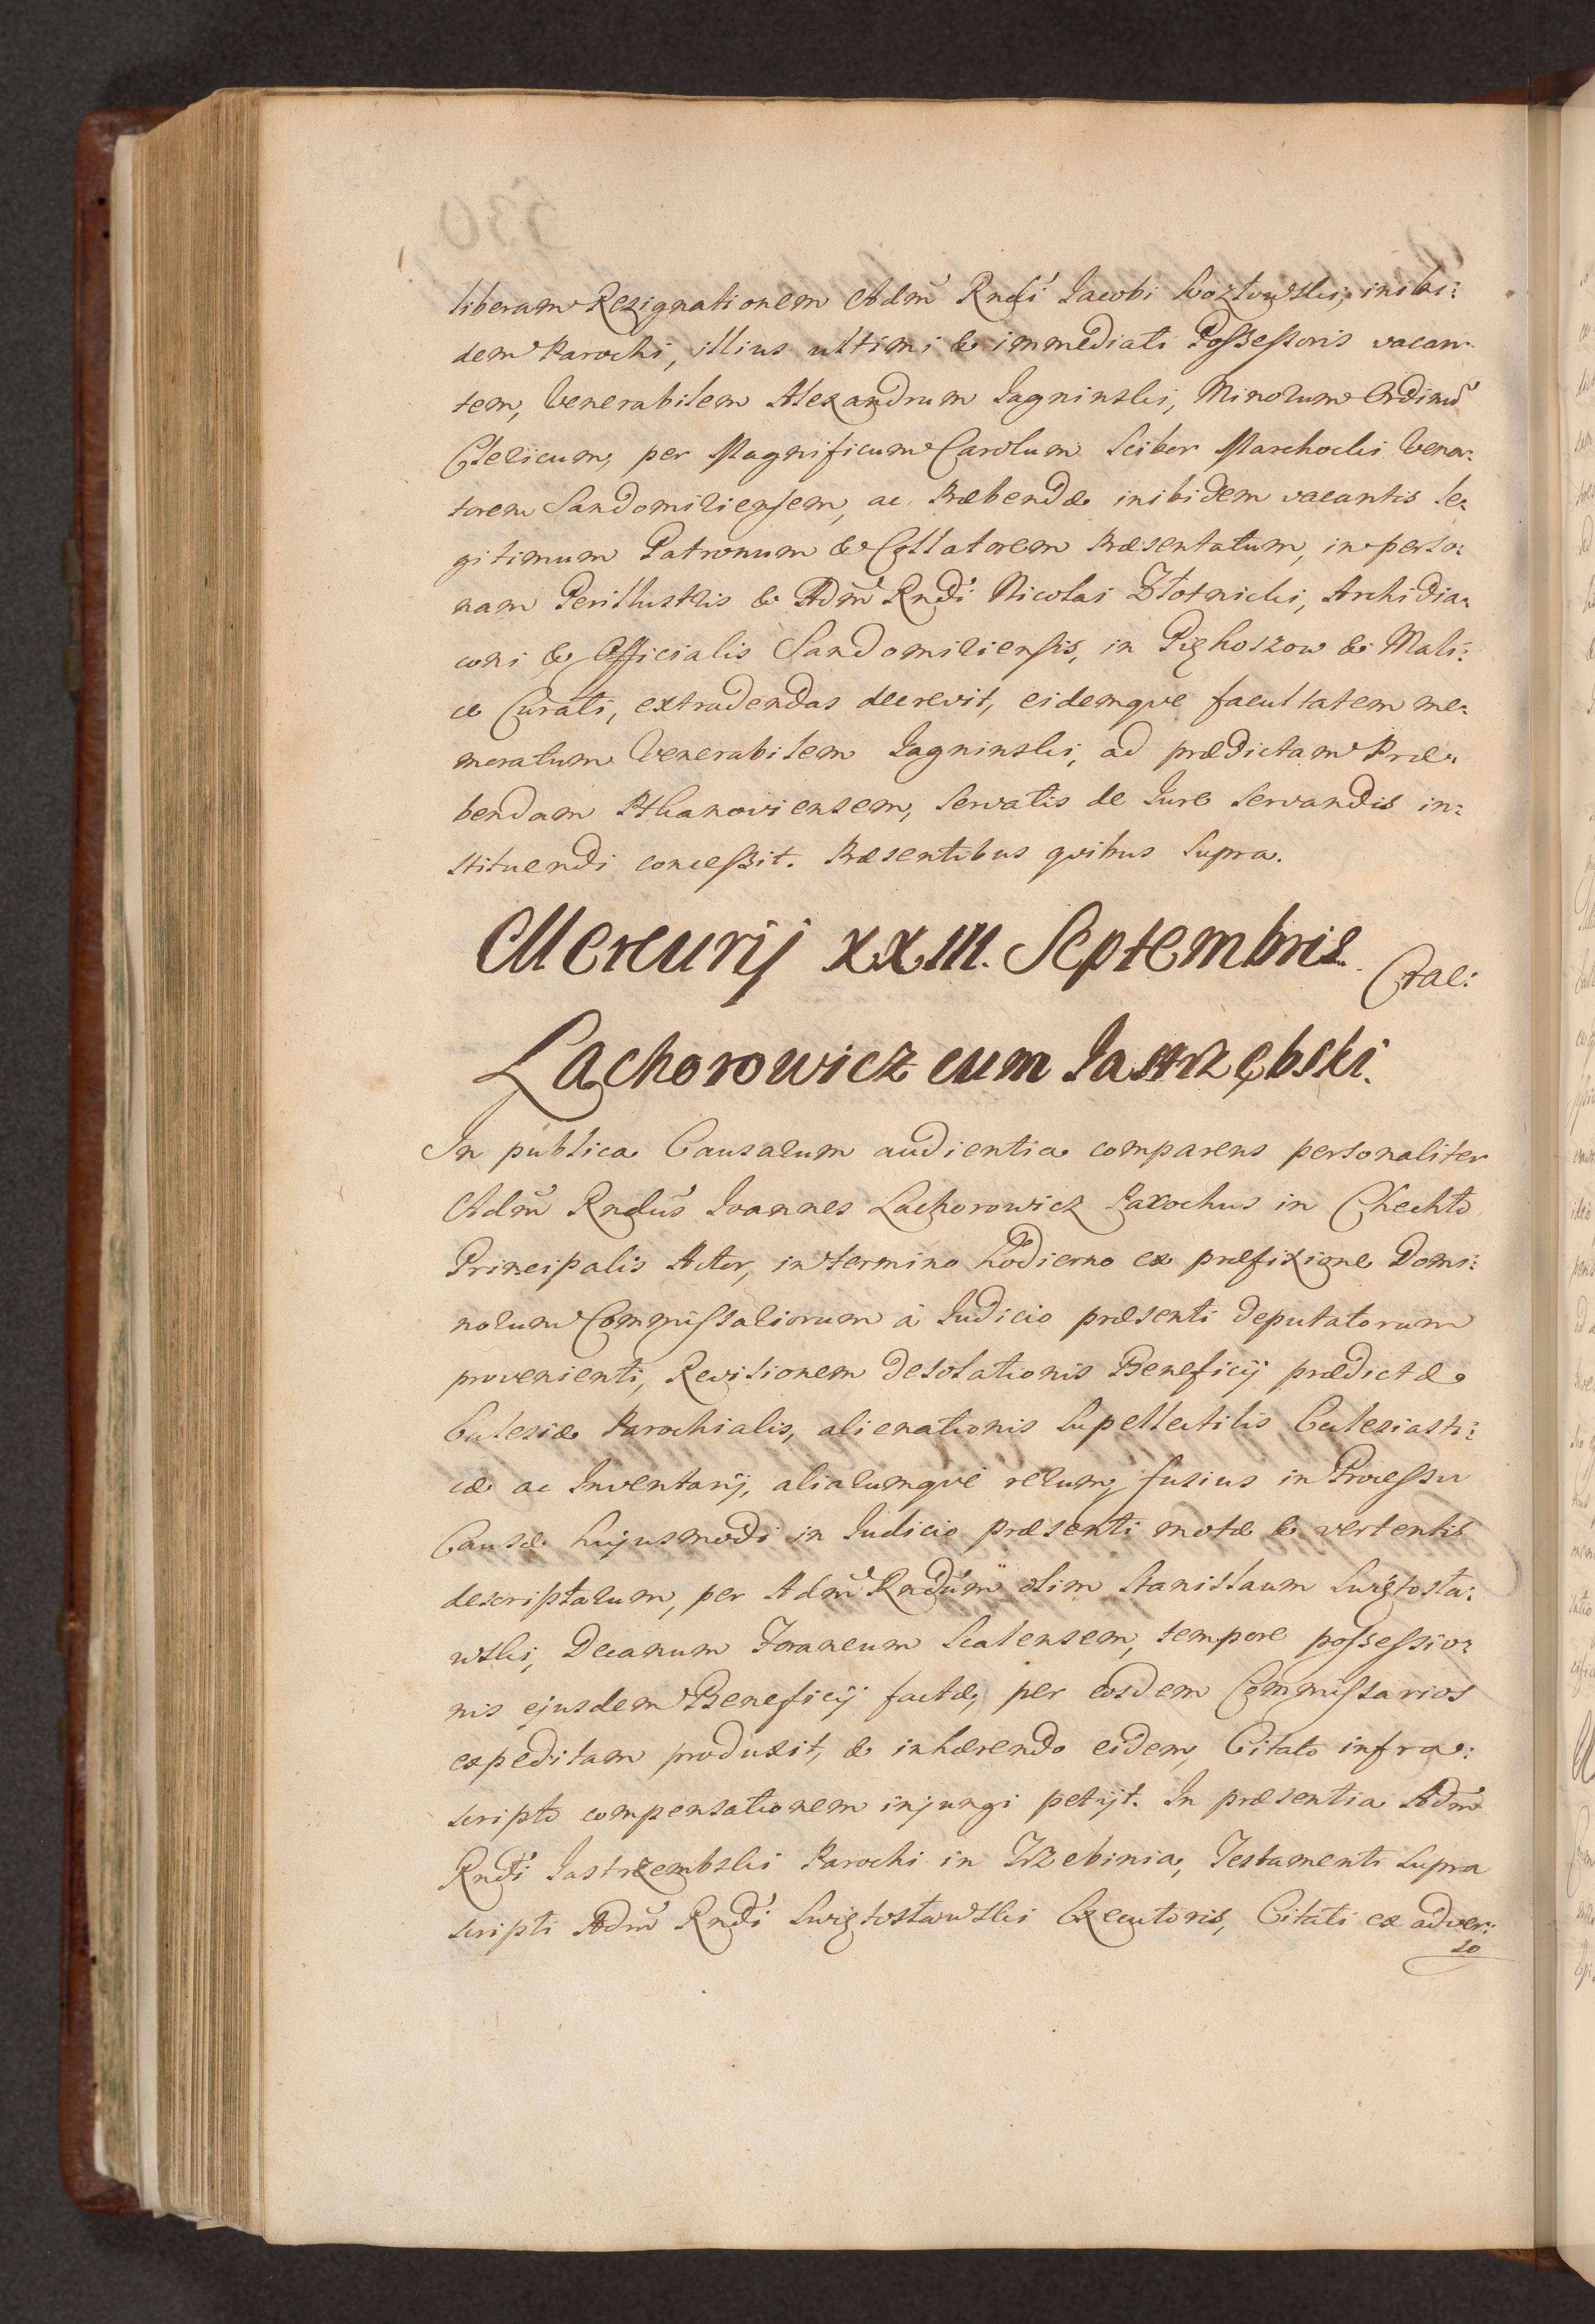 liberam Rezignationem Adm̃ Rndi Jacobi Kozłowski, inibi:
dem Parochi, illius ultimi & immediati Possessoris vacan:
tem, Venerabilem Alexandrum Jagninski, Minorum Ordinũ
Clericum, per Magnificum Carolum Scibor Marchocki Vena:
torem Sandomiriensem, ac Præbendæ inibidem vacantis le:
gitimum Patronum & Collatorem Præsentatum, in perso:
nam Perillustris & Adm̃ Rndi Nicolai Złotnicki, Archidia:
coni & Officialis Sandomiriensis, in Mali:
ce Curati, extradendas decrevit, eidemque facultatem me:
moratum Venerabilem Jagninski, ad prædictam Præ:
bendam Ptkanoviensem, servatis de Jure servandis in:
stituendi concessit. Præsentibus quibus supra.
Mercurij XXIII. Septembris Crac:
Lachorowicz cum Jastrzębski.
In publica Causarum audientia comparens personaliter
Adm̃ Rndus Joannes Lachorowicz Parochus in Chechło
Principalis Actor, in termino hodierno ex præfixione Domi:
norum Commissariorum à Judicio præsenti deputatorum
provenienti, Revisionem desolationis Beneficij prædictæ
Ecclesiæ Parochialis, alienationis supellectilis Ecclesiasti:
cæ ac Inventarij, aliarumque rerum, fusius in Processu
Causæ hujusmodi in Judicio præsenti motæ & vertentis
descriptarum, per Adm̃ Rndum olim Stanislaum Swiętosła:
wski, Decanum Foraneum Scalensem, tempore possessio:
nis ejusdem Beneficij factæ, per eosdem Commissarios
expeditam produxit, & inhærendo eidem, Citato infra:
scripto compensationem injungi petijt. In præsentia Adm̃
Rndi Jastrzembski Parochi in Trzebinia, Testamenti supra
scripti Adm̃ Rndi Swiętosławski Executoris, Citati ex adver:
so